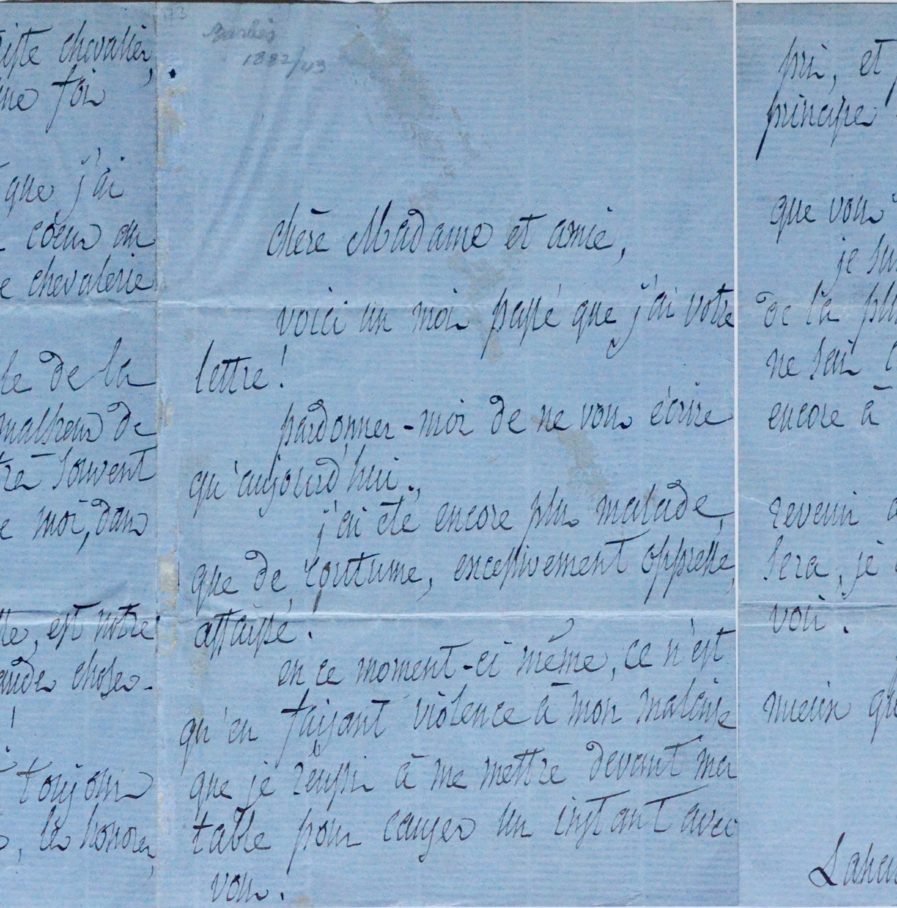 iste chevalier,
me foi
que j'ai
coeur on
e chevalerie
le de la
malheur de
tre souvent
e moi, dans
lle, est notre
andes choses.
!
toujours
, les honorer,
73
Barbès
1882/43
chère Madame et amie,
voici un mois passé que j'ai votre
lettre !
pardonnez-moi de ne vous écrire
qu'aujourd'hui.
j'ai été encore plus malade,
que de coutume, excessivement oppressé,
affaissé.
en ce moment-ci même, ce n'est
qu'en faisant violence à mon malaise
que je réussis à me mettre devant ma
table pour causer un instant avec
vous.
pris, et p
principe
que vous
je sui
de la plu
ne sais
encore à
revenir
sera, je
vois.
mieux que